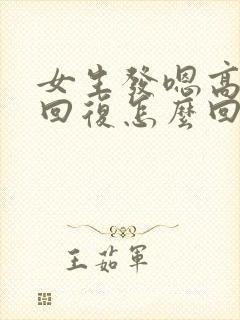 女生發嗯高
回復怎麼回
王茹軍